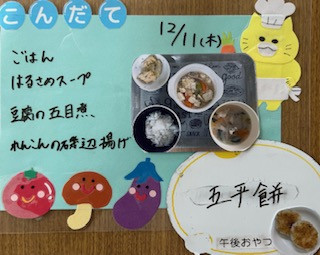 こんだて
12/11(木)
ごはん
はるさめスープ
豆腐の五目煮
れんこんの磯辺揚げ
五平餅
午後おやつ